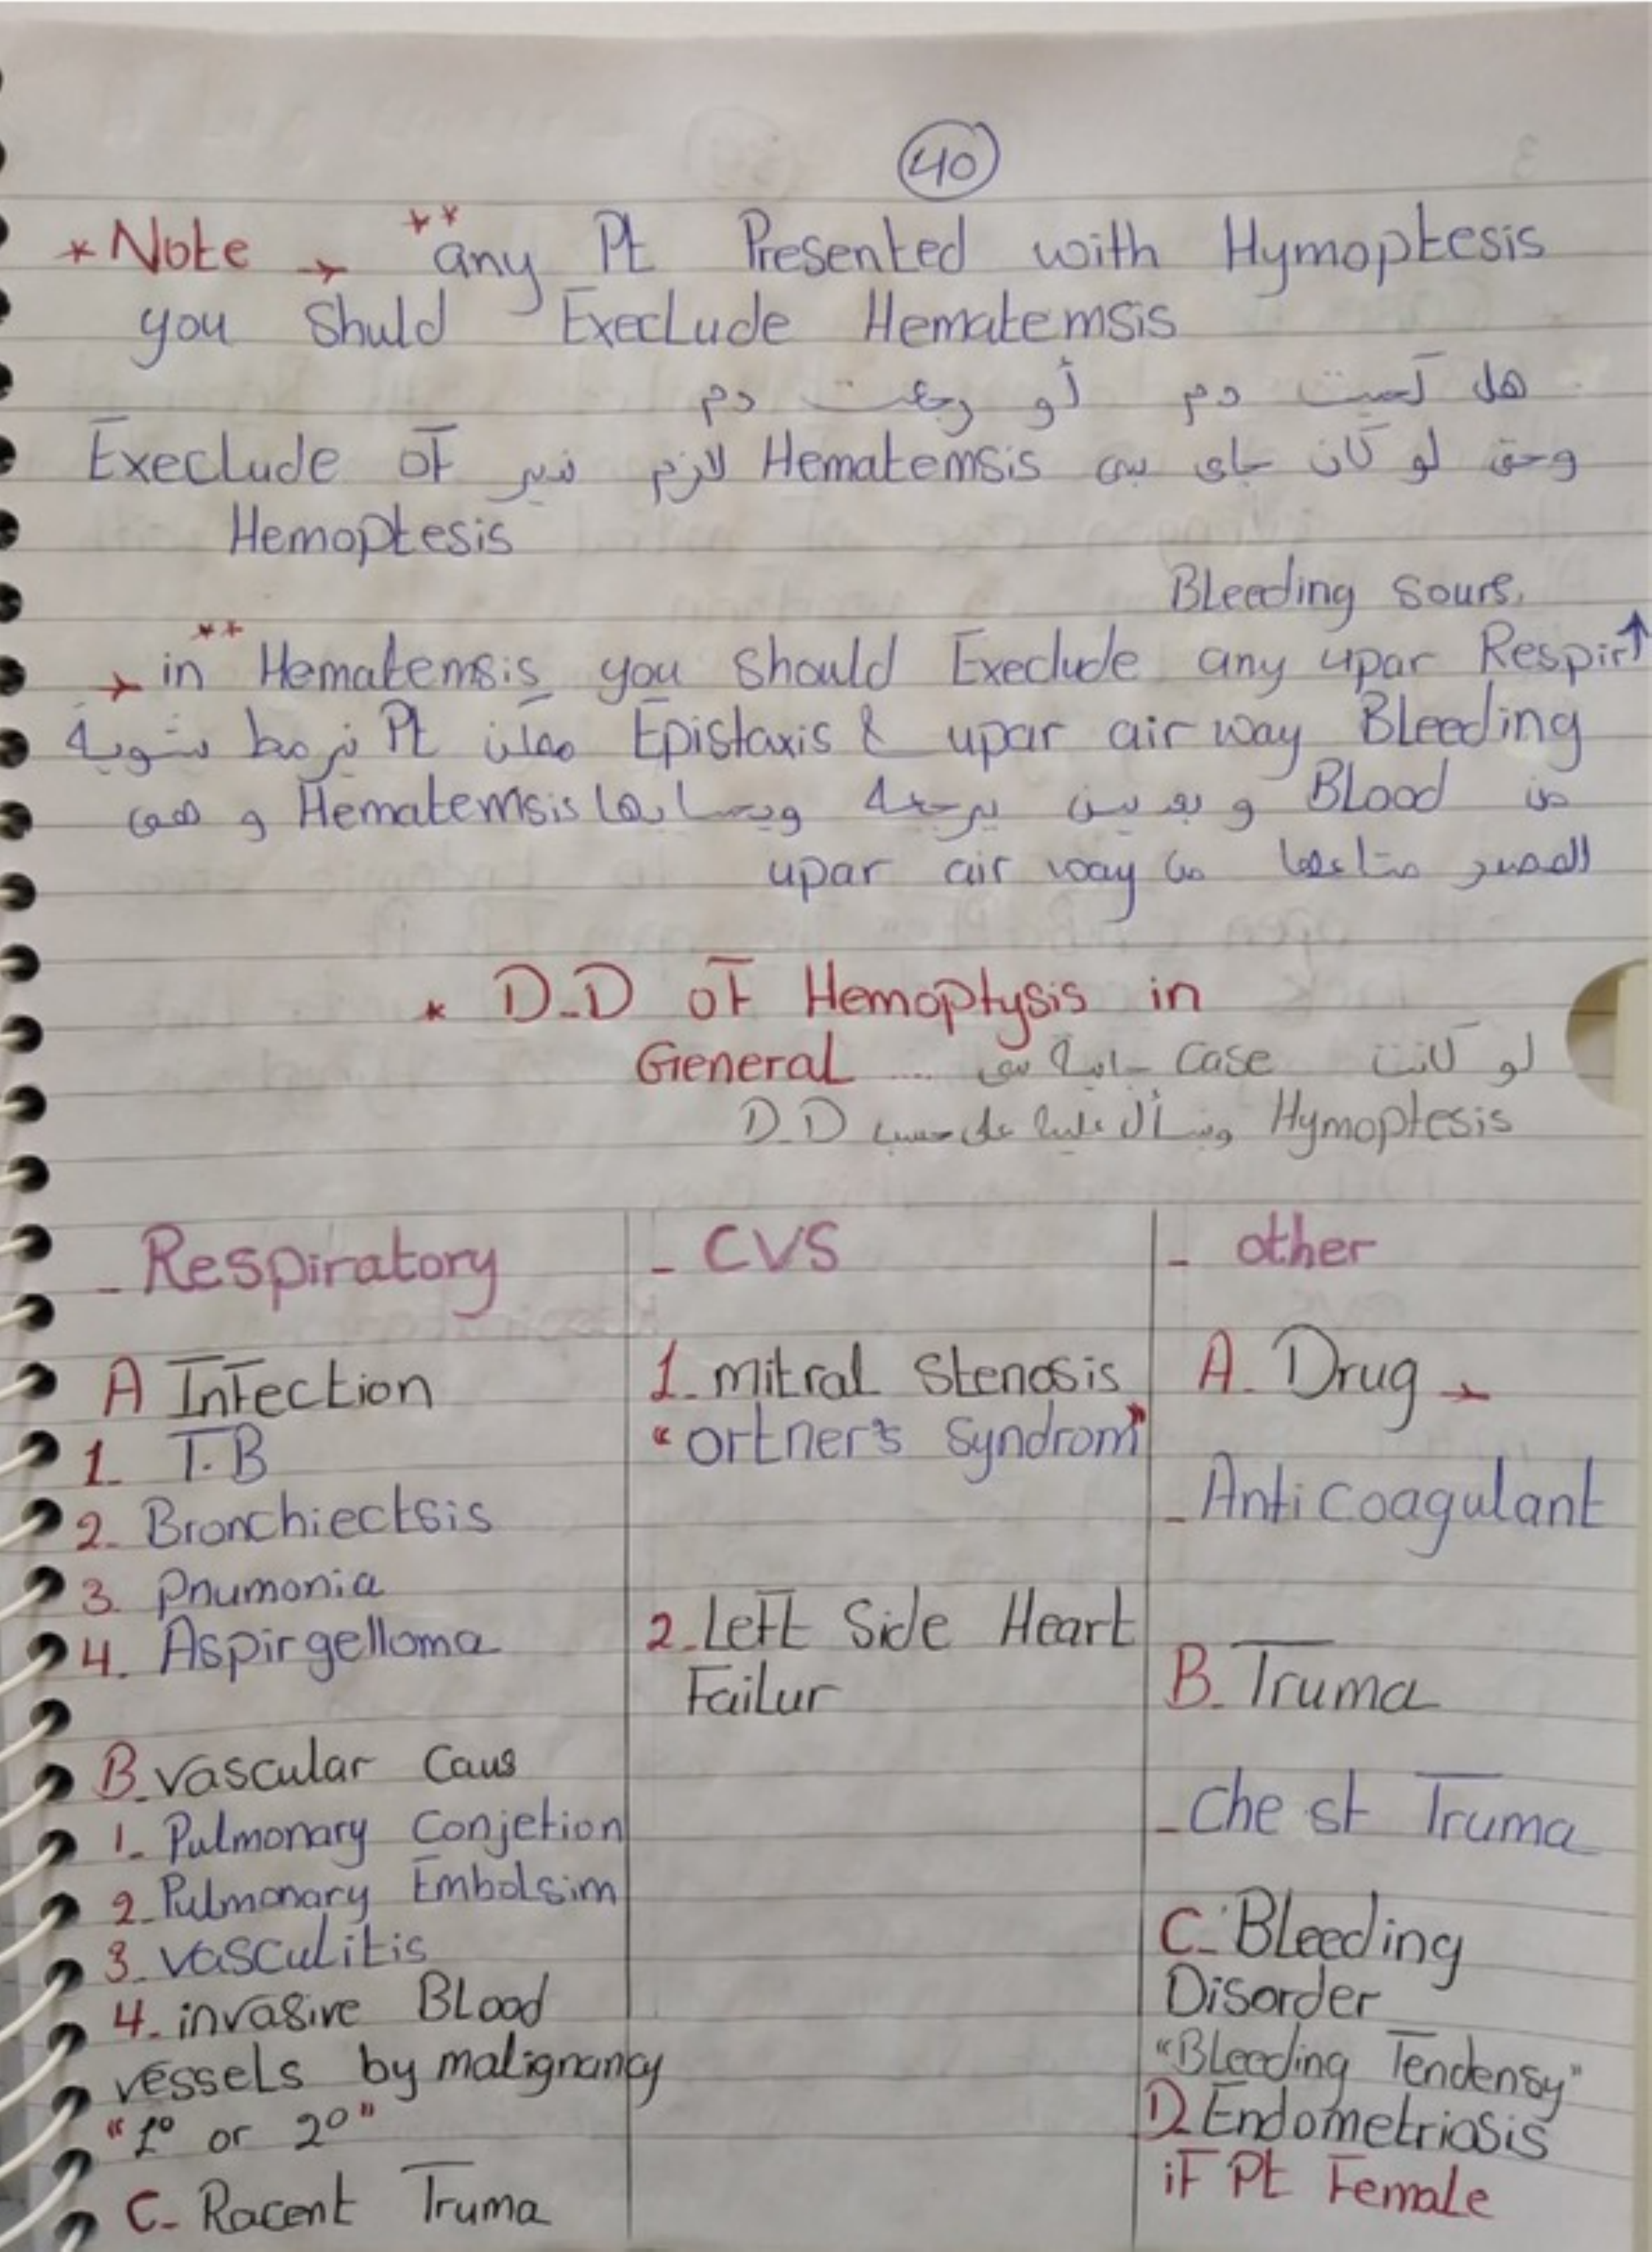 40
* Note → ** any Pt Presented with Hymoptesis
you Shuld Execlude Hematemsis
هل كحيت دم أو رجعت دم
وحتى لو كان جاي بي Hematemsis لازم ندير Execlude of
Hemoptesis
Bleeding sours.
→ ** in Hematemsis you should Execlude any upar Respir↑
Epistaxis & upar air way Bleeding ممكن Pt شوية
من Blood و بعدين يرجعه Hematemsis و هي
المصدر متاعها من upar air way
* D.D of Hemoptysis in
General .... لو كانت Case جاية بي
Hymoptesis ونسأل عليه على حسب D.D
- Respiratory
A Infection
1. T.B
2. Bronchiectsis
3. Pnumonia
4. Aspirgelloma
B. vascular Caus
1. Pulmonary Conjetion
2. Pulmonary Embolsim
3. vasculitis
4. invasive Blood
vessels by malignancy
"1° or 2°"
C- Racent Truma
- CVS
1. mitral Stenosis
"ortner's Syndrom"
2. Left Side Heart
Failur
- other
A. Drug →
- Anti Coagulant
B. Truma
- Che st Truma
C. Bleeding
Disorder
"Bleeding Tendensy"
D. Endometriosis
if Pt Female